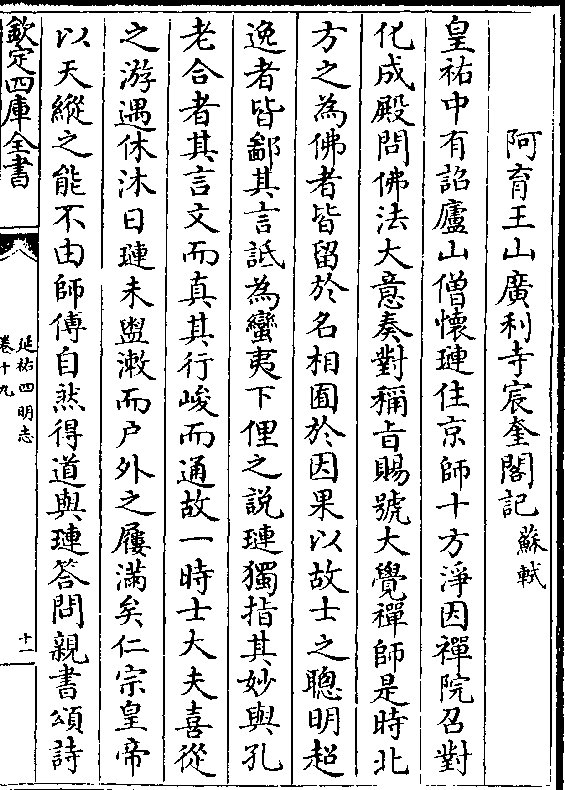 阿育王山廣利寺宸奎閣記 蘇軾
皇祐中有詔廬山僧懷璉住京師十方淨因禪院召對
化成殿問佛法大意奏對稱旨賜號大覺禪師是時北
方之為佛者皆留於名相囿於因果以故士之聰明超
逸者皆鄙其言詆為蠻夷下俚之說璉獨指其妙與孔
老合者其言文而真其行峻而通故一時士大夫喜從
之游遇休沐日璉未盥漱而户外之屨滿矣仁宗皇帝
以天縱之能不由師傅自然得道與璉答問親書頌詩
欽定四庫全書
延祐四明志
卷十九
十一